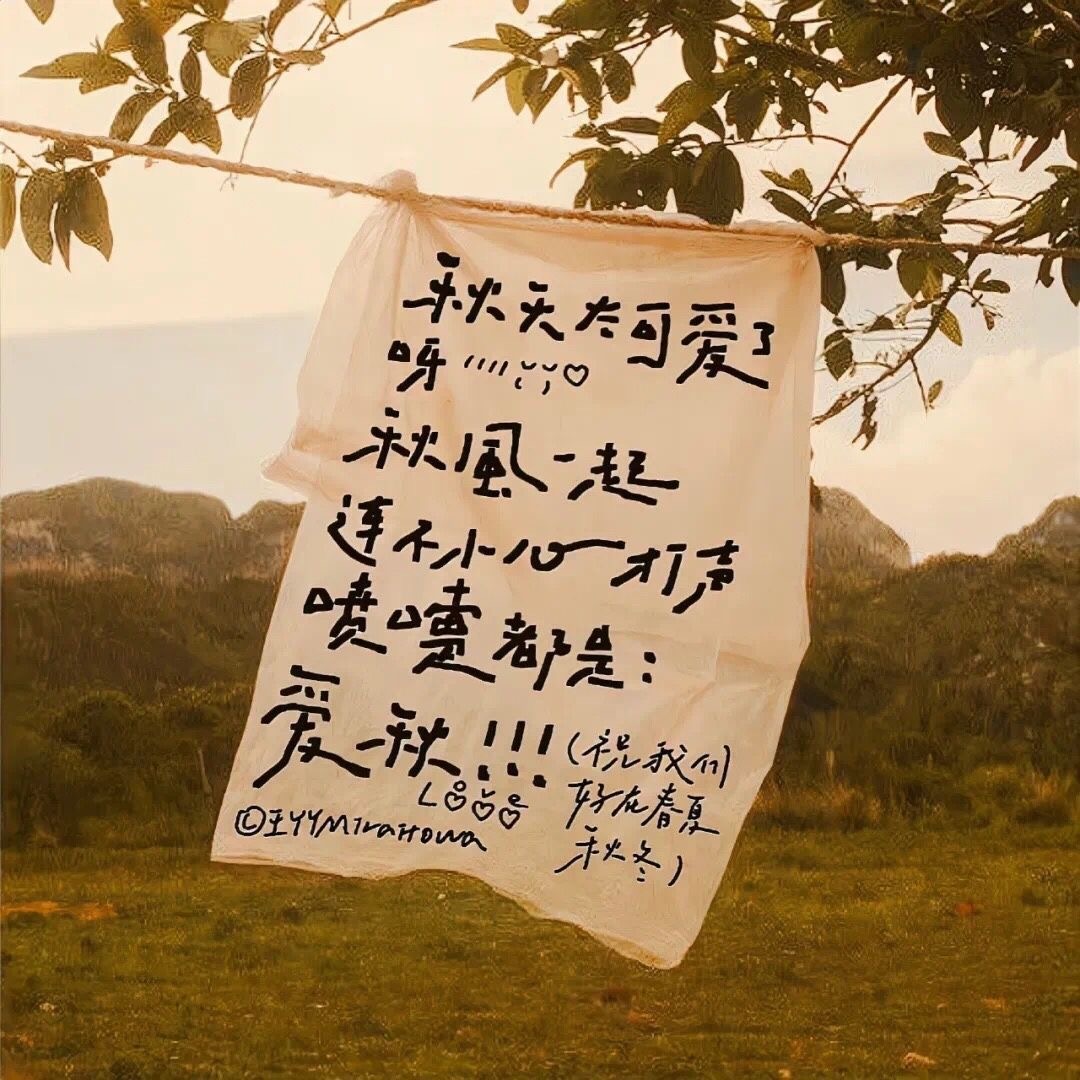 秋天太可爱了
呀
秋風一起
连不小心打声
喷嚏都是:
爱秋!!!
(祝我们
好在春夏
秋冬)
©王YYMiraitowa